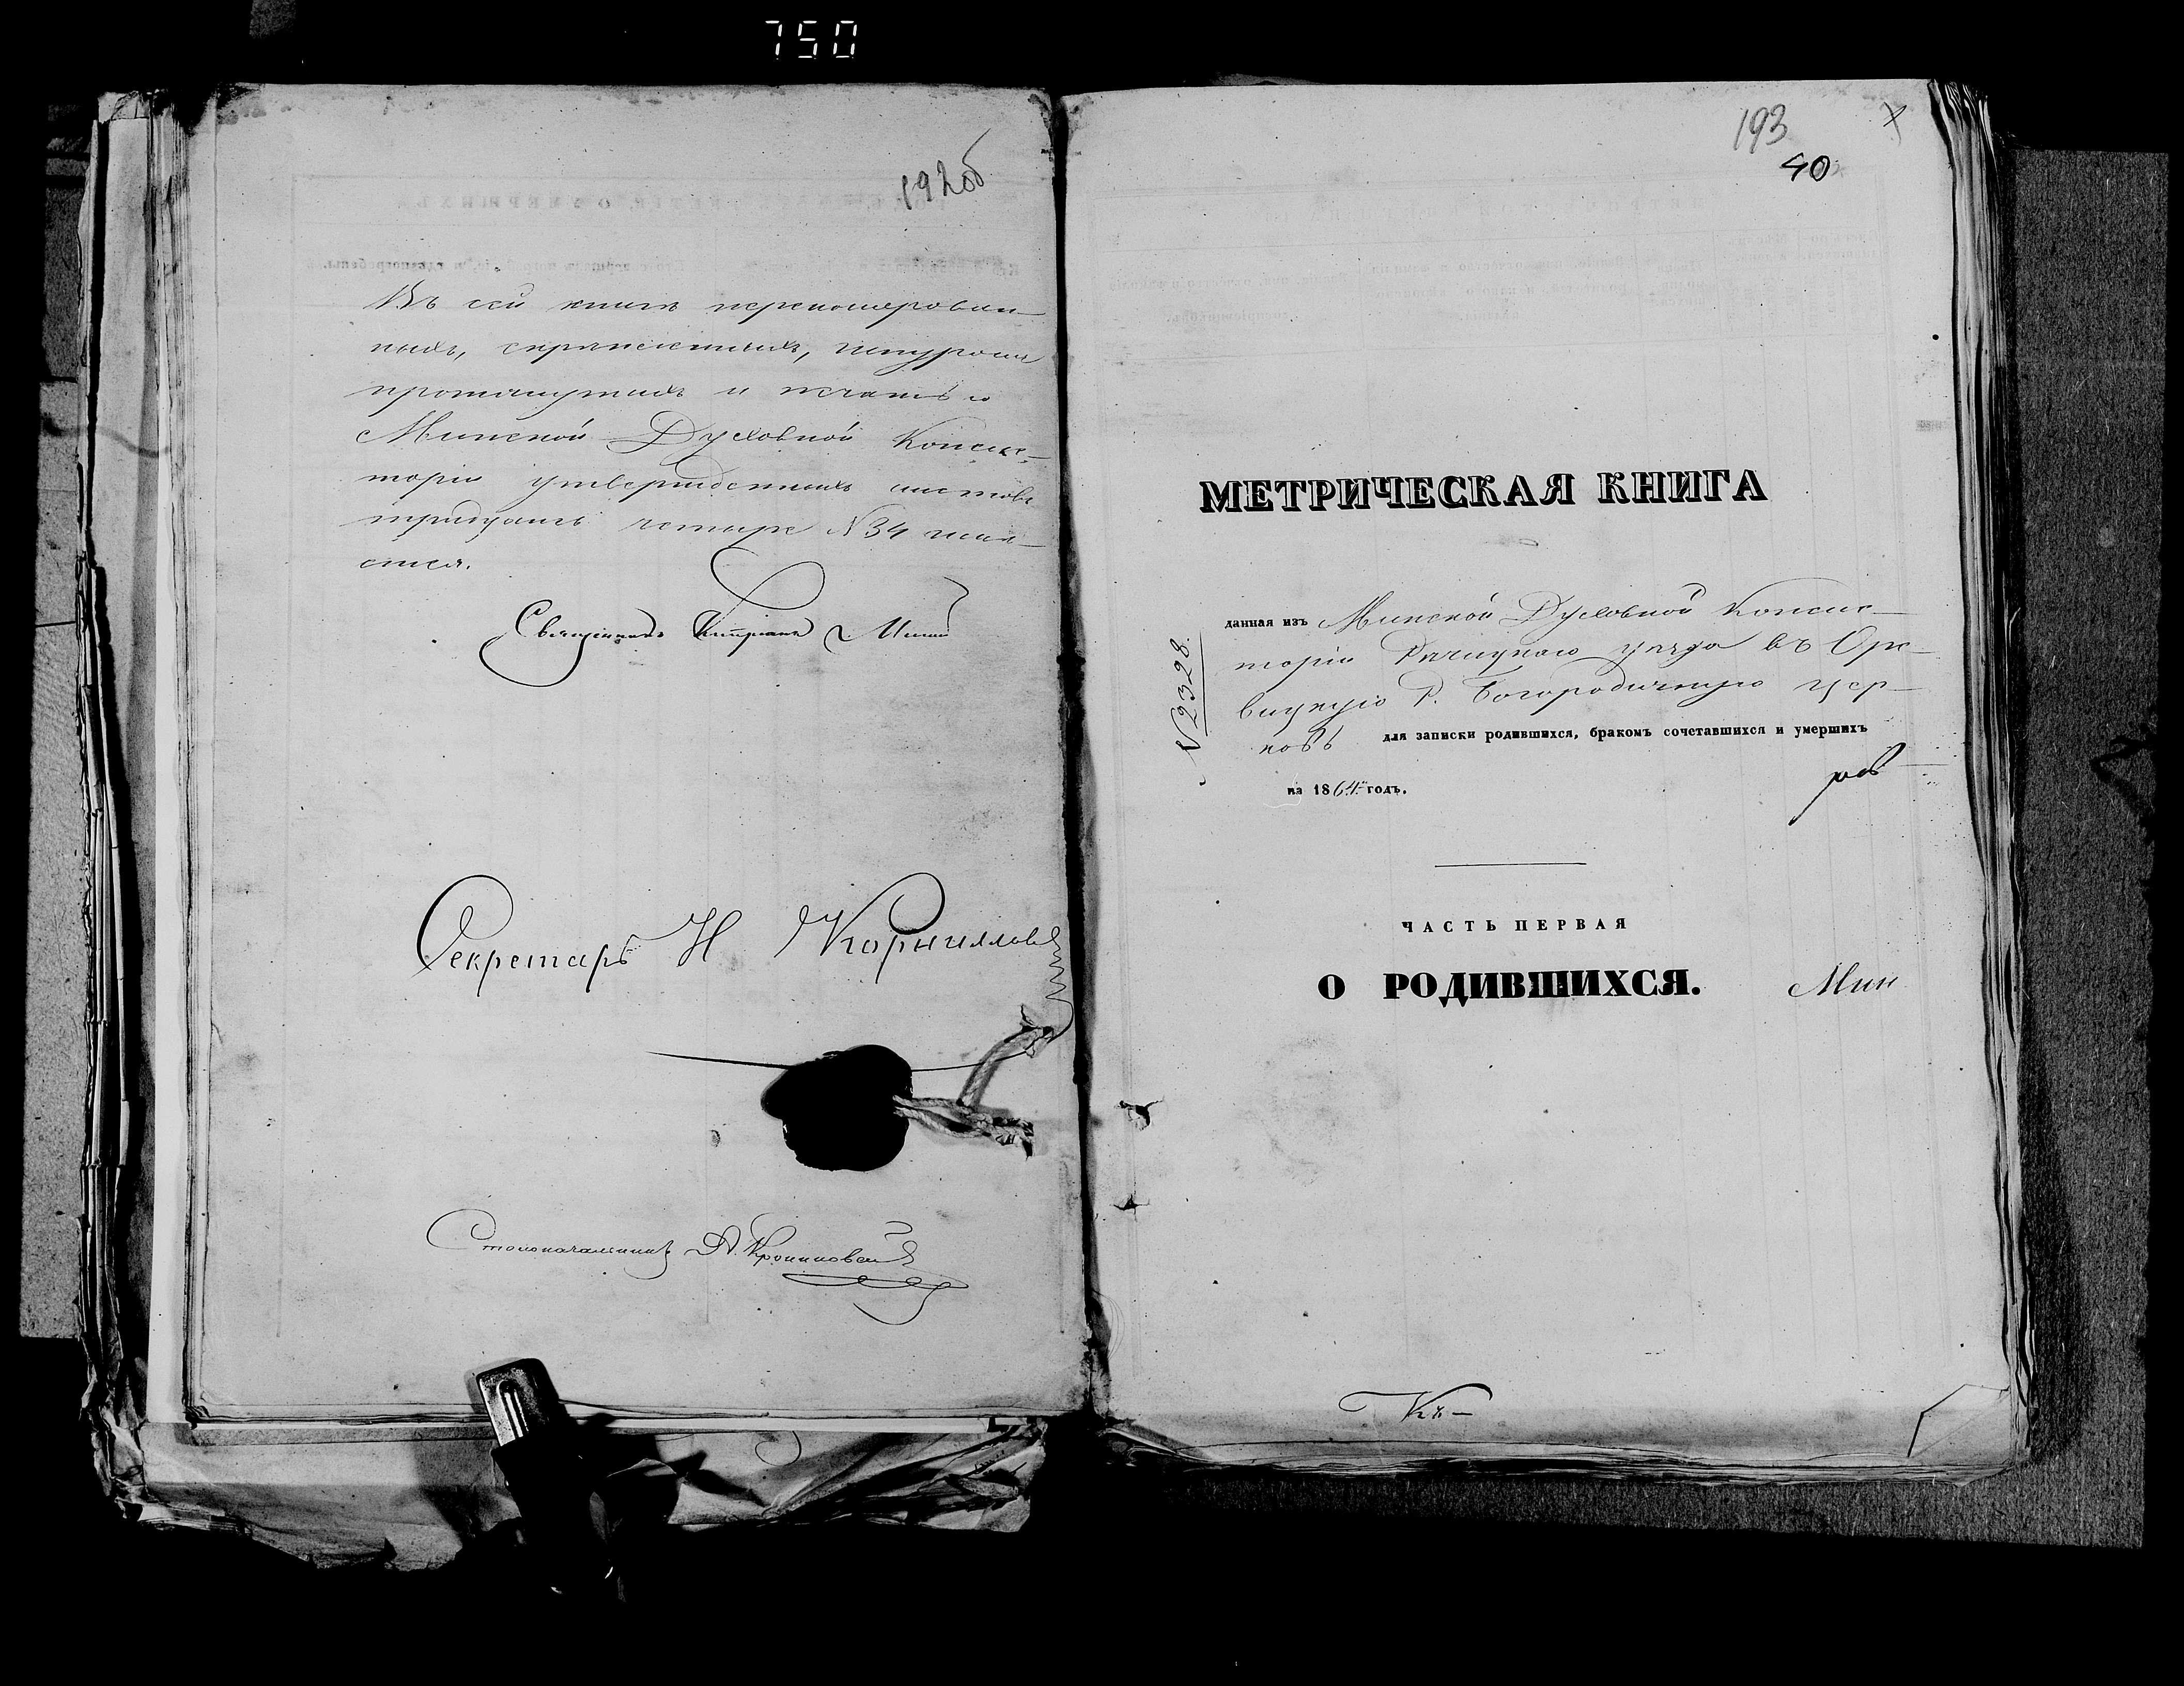 750
192об
Въ сей книгѣ перенумерован-
ныхъ, скрѣпленныхъ, шнуромъ
протянутыхъ и печатью
Минской Духовной Консис-
торіи утвержденныхъ листовъ
тридцать четыре №34 чис-
лится.
Священникъ
Секретарь Н Корниловъ
Столоначальникъ А.
193
40
МЕТРИЧЕСКАЯ КНИГА
№ 2328.
данная изъ Минской Духовной Консис-
торіи Рѣчицкаго уѣзда въ Оре-
вицкую Р. Богородичную цер-
ковь для записки родившихся, бракомъ сочетавшихся и умершихъ
на 1864 годъ.
ЧАСТЬ ПЕРВАЯ
О РОДИВШИХСЯ.
Мин